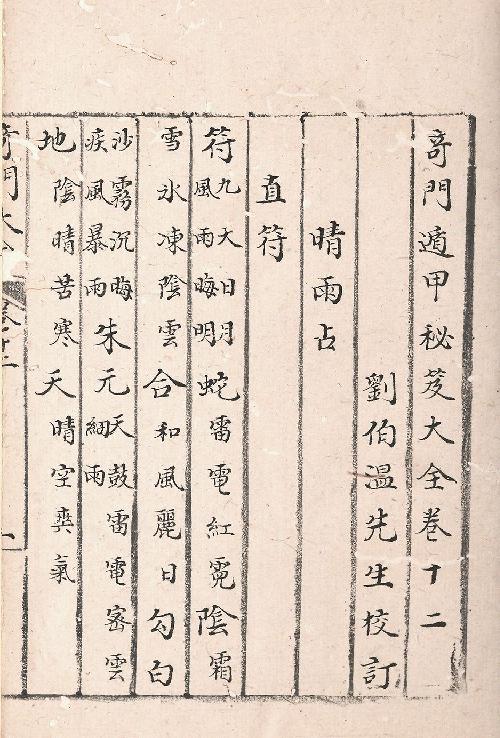 奇門遁甲秘笈大全卷十二
劉伯温先生校訂
晴雨占
直符
符九天日月風雨晦明蛇雷電紅霓陰霜
雪氷凍陰雲合和風麗日勾白
沙霧沉晦疾風暴雨朱元天鼓雷電密雲細雨
地陰晴苦寒天晴空爽氣